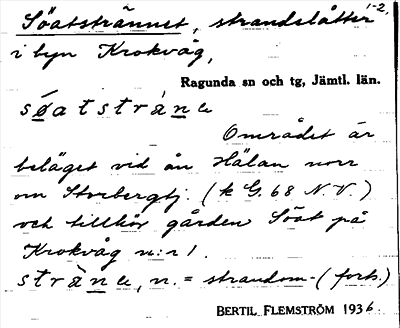 1-2.
Söatstrännet, strandslåtter
i byn Krokvåg,
Ragunda sn och tg, Jämtl. län.
søatstràne
Området är
beläget vid ån Hälan norr
om Storbergtj. (k G. 68 N.V.)
och tillhör gården Söat på
Krokvåg n:r 1.
stràne, n. = strandom- (forts.)
BERTIL FLEMSTRÖM 1936